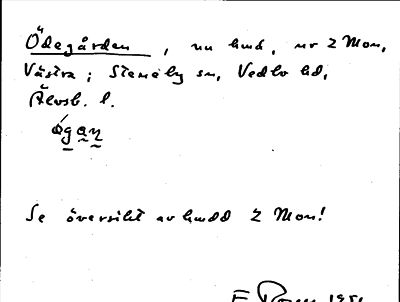 Ödegården, nu hmd, nr 2 Mon,
Västra; Steneby sn, Vedbo hd,
Älvsb. l.
Se översikt av hmdd 2 Mon!